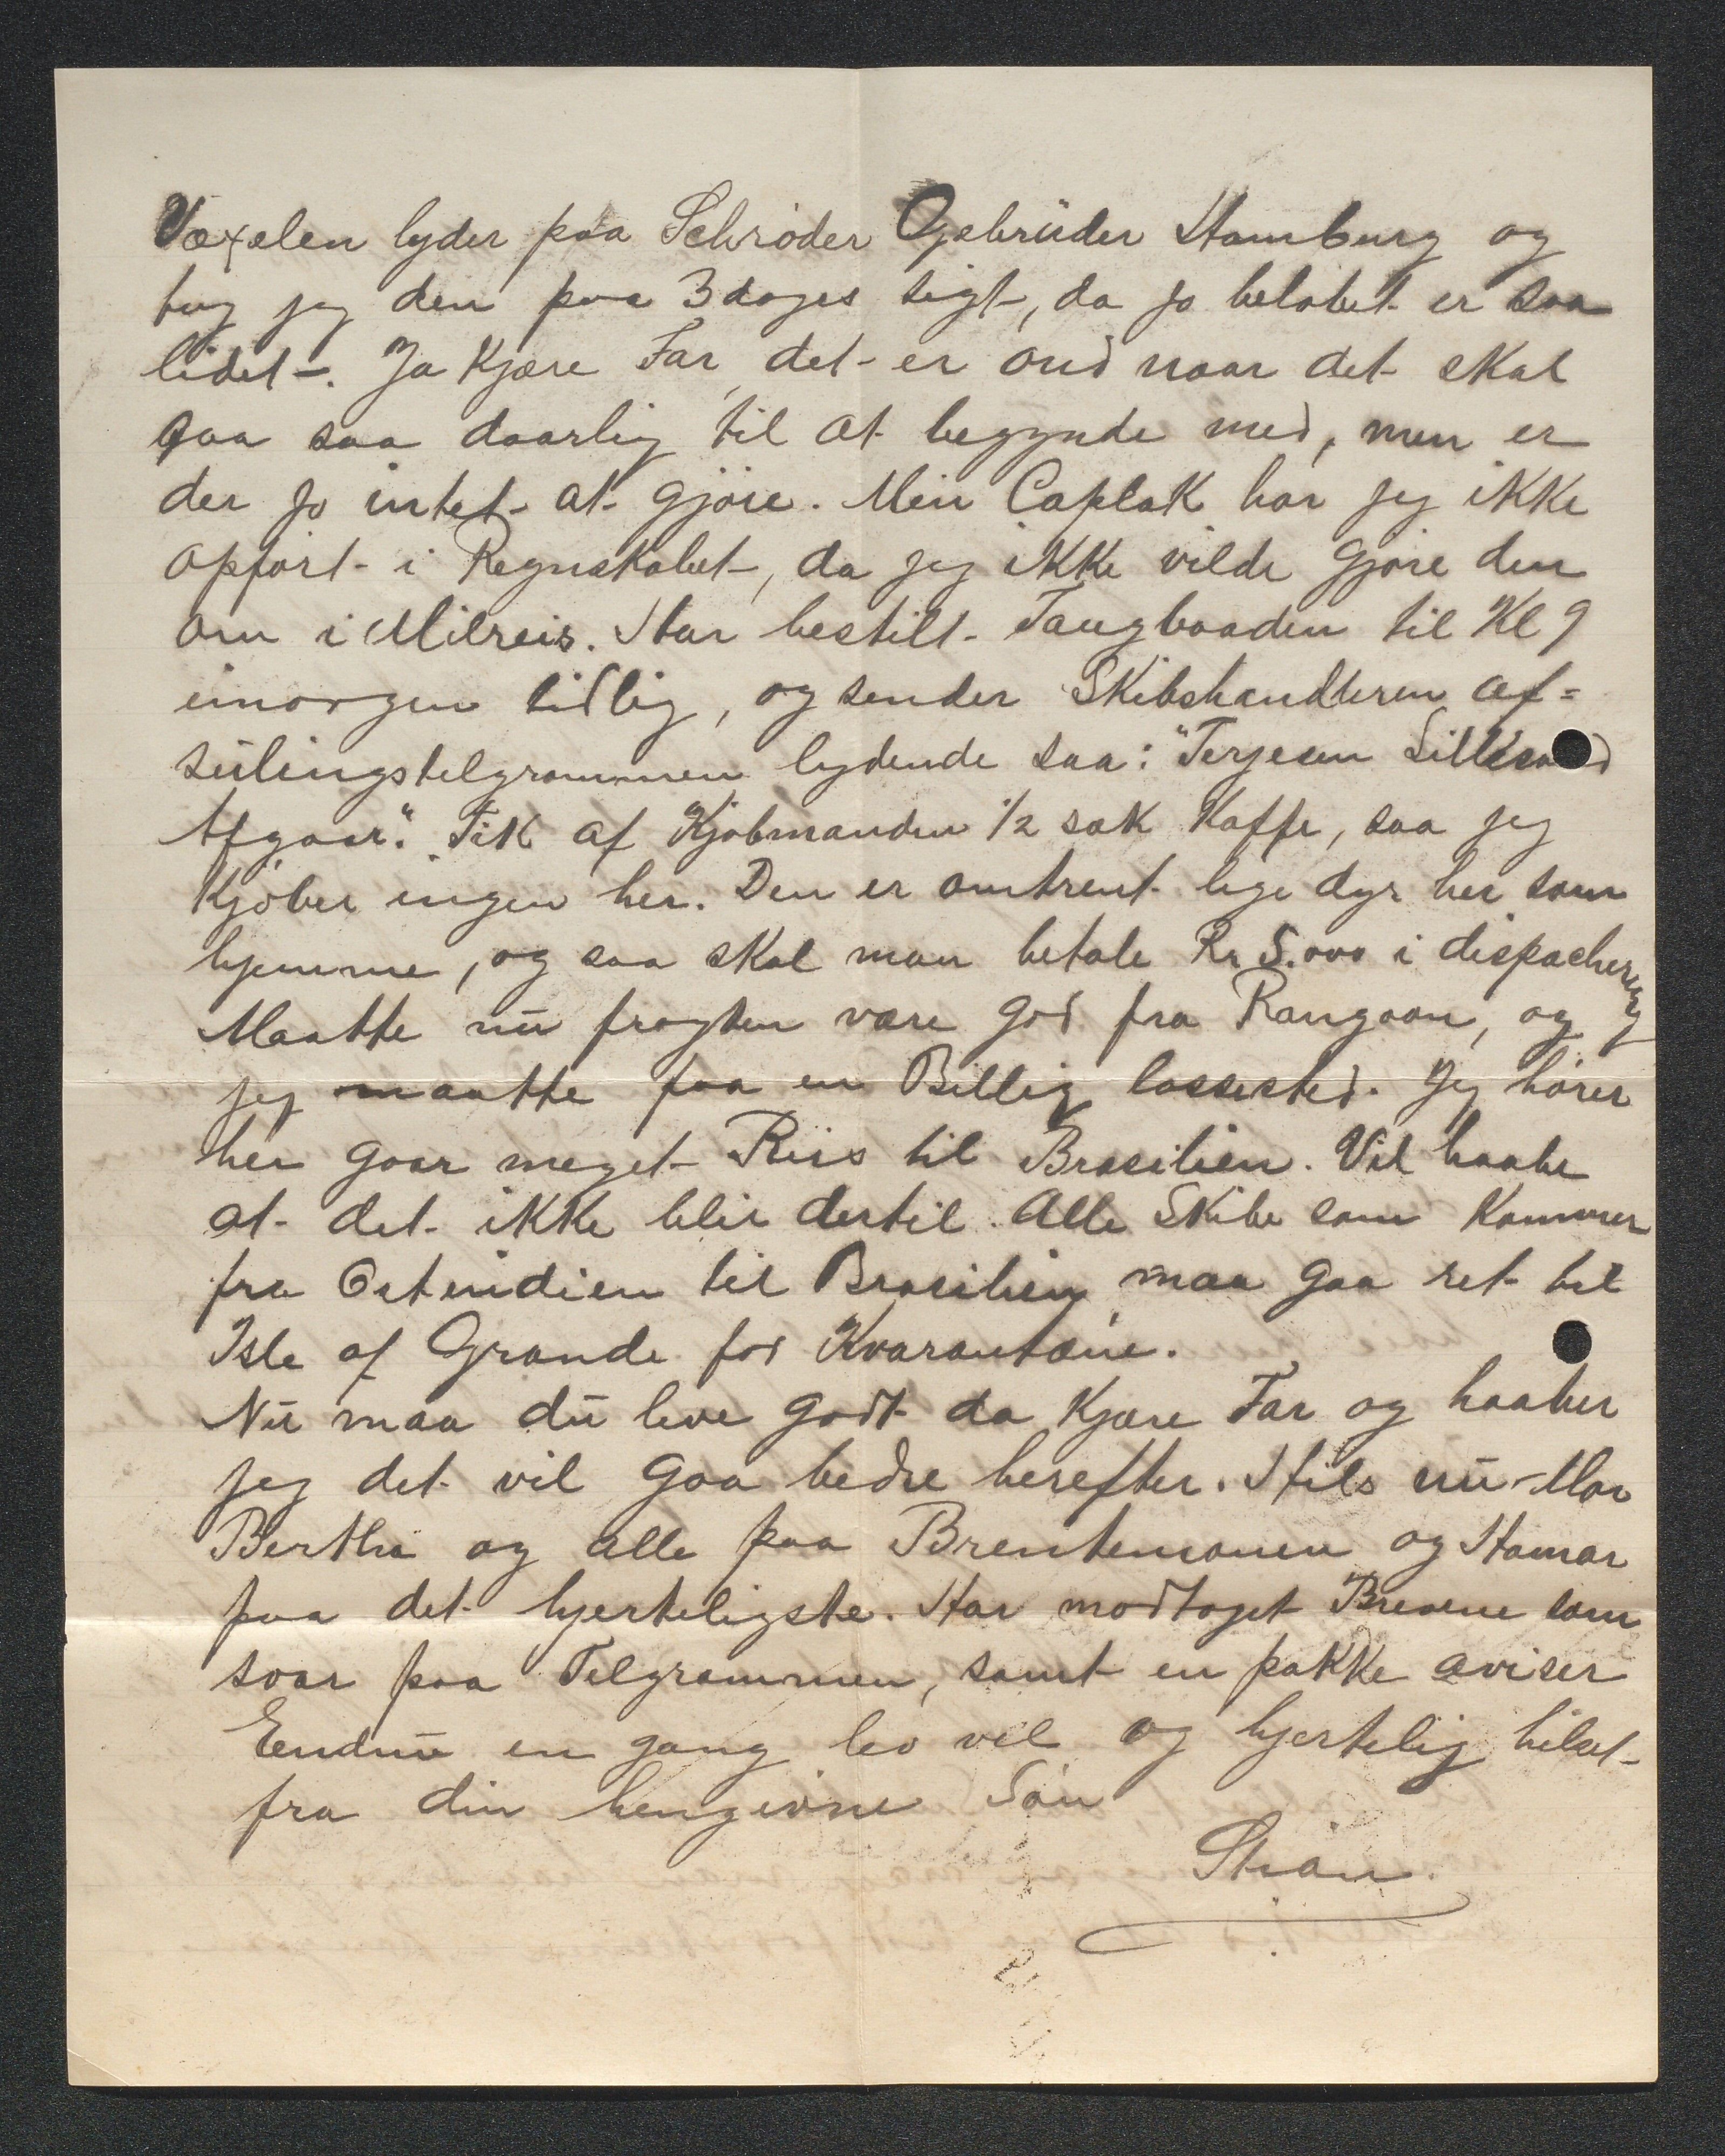 Væxelen lyder paa Schrøder Gebrüder Hamburg og
tog jeg den paa 3 dages sigt, da jo beløbet er saa
lidet. Ja Kjære Far, det er ond naar det skal
gaa saa daarlig til at begynde med, men er
der jo intet at gjøre. Min Caplak har jeg ikke
opført i Regnskabet, da jeg ikke vilde gjøre den
om i Milreis. Har bestilt Taugbaaden til Kl 9
imorgen tidlig, og sender Skibshandleren af=
seilingstelgrammen lydende saa: "Terjesen Lillesand
Afgaar". Fik af Kjøbmanden 1/2 sæk Kaffe, saa jeg
Kjøber ingen her. Den er omtrent lige dyr her som
hjemme, og saa skal man betale Rs 5.000 i dispachering
Maatte nu fragten være god fra Rangoon, og
jeg maatte faa en Billig lossested. Jeg hører
her gaar meget Riis til Brasilien. Vil haabe
at det ikke blir dertil. Alle Skibe som Kommer
fra Ostindien til Brasilien maa gaa ret til
Isle of Grande for Kvarantæne.
Nu maa du leve godt da Kjære Far og haaber
jeg det vil gaa bedre herefter. Hils nu Mor
Bertha og alle paa Brentemoen og Hamar
paa det hjerteligste. Har modtaget Brevene som
svar paa Telgrammen, samt en pakke aviser
Endnu en gang lev vel og hjertelig hilset
fra din hengivne Søn
Stian.